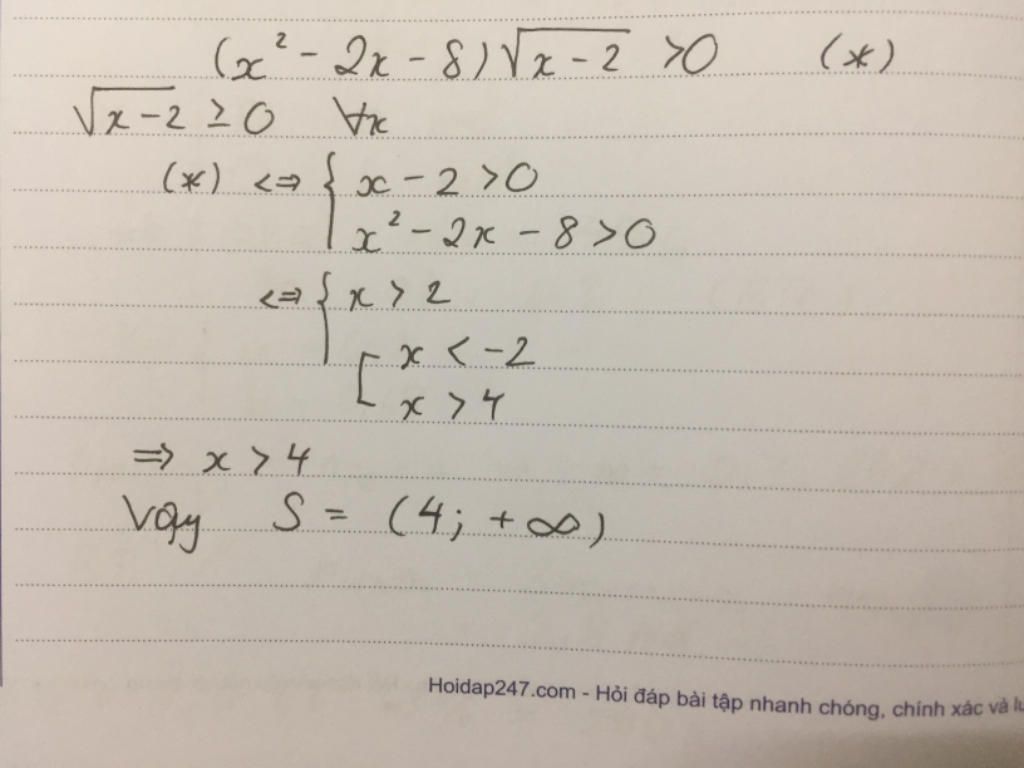 (x² - 2x - 8)√(x - 2) > 0 (*)
√(x - 2) ≥ 0 ∀x
(*) <=> { x - 2 > 0
x² - 2x - 8 > 0
<=> { x > 2
[ x < -2
x > 4
=> x > 4
Vậy S = (4; +∞)
Hoidap247.com - Hỏi đáp bài tập nhanh chóng, chính xác và